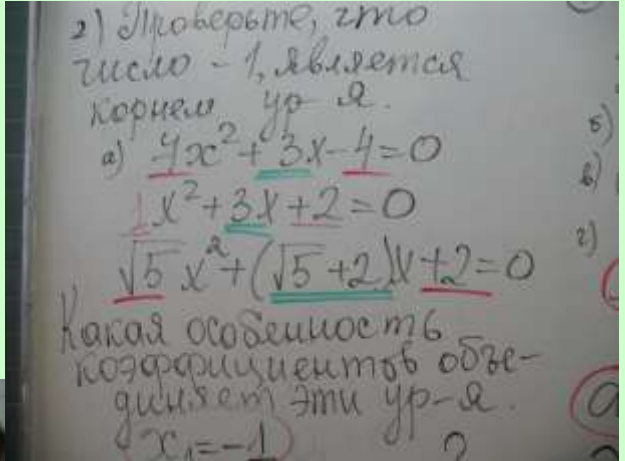 2) Проверьте, что
число -1, является
корнем ур-я.
а) 7x² + 3x - 4 = 0
1x² + 3x + 2 = 0
√5x² + (√5 + 2)x + 2 = 0
Какая особенность
коэффициентов объе-
диняет эти ур-я.
x₁ = -1 ?
б)
в)
г)